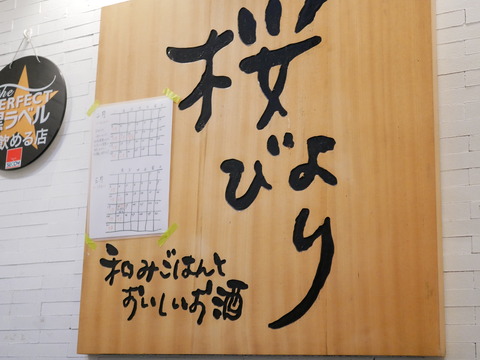 桜
びより
和みごはんと
おいしいお酒
The
PERFECT
黒ラベル
飲める店